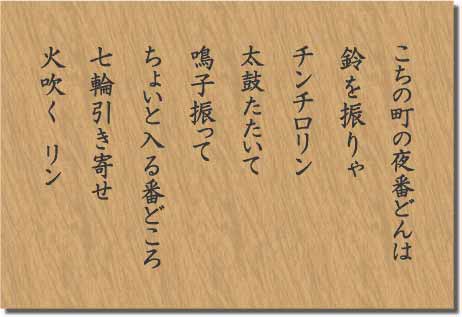 こちの町の夜番どんは
鈴を振りゃ
チンチロリン
太鼓たたいて
鳴子振って
ちょいと入る番どころ
七輪引き寄せ
火吹く リン